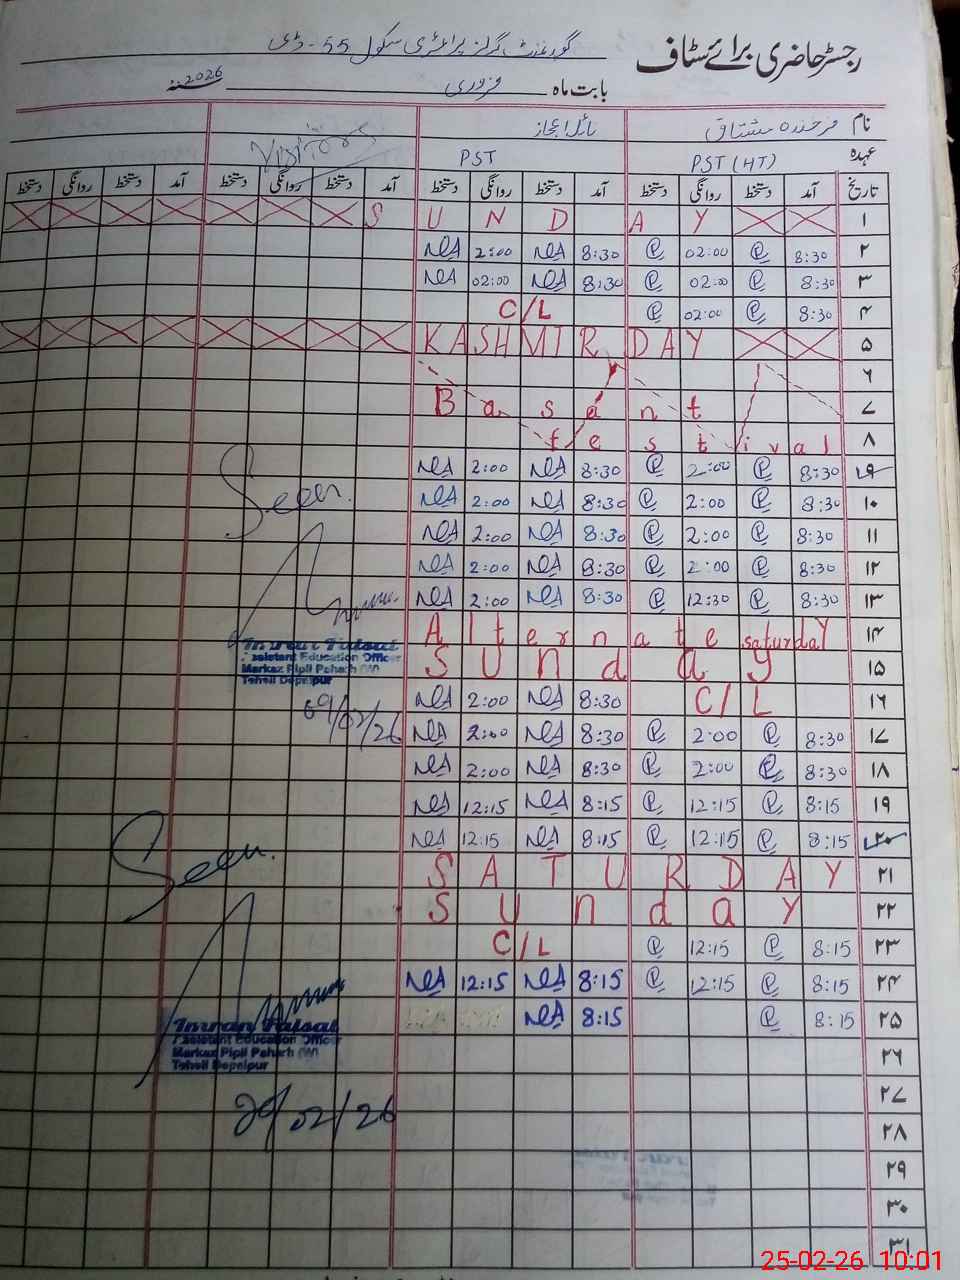 رجسٹر حاضری برائے سٹاف
گورنمنٹ گرلز پرائمری سکول 55-ڈی
بابت ماہ فروری 2026
نام فرخندہ مشتاق نائلہ اعجاز
عہدہ PST (HT) PST Visitors
تاریخ آمد دستخط روانگی دستخط آمد دستخط روانگی دستخط آمد دستخط روانگی دستخط آمد دستخط روانگی دستخط
۱ SUNDAY
۲ 8:30 02:00 8:30 2:00
۳ 8:30 02:00 8:30 02:00
۴ 8:30 02:00 C/L
۵ KASHMIR DAY
۶
۷ Basant
۸ festival
۹ 8:30 2:00 8:30 2:00
۱۰ 8:30 2:00 8:30 2:00
۱۱ 8:30 2:00 8:30 2:00
۱۲ 8:30 2:00 8:30 2:00
۱۳ 8:30 12:30 8:30 2:00
۱۴ Alternate saturday
۱۵ Sunday
۱۶ C/L 8:30 2:00
۱۷ 8:30 2:00 8:30 2:00
۱۸ 8:30 2:00 8:30 2:00
۱۹ 8:15 12:15 8:15 12:15
۲۰ 8:15 12:15 8:15 12:15
۲۱ SATURDAY
۲۲ Sunday
۲۳ 8:15 12:15 C/L
۲۴ 8:15 12:15 8:15 12:15
۲۵ 8:15 8:15
۲۶
۲۷
۲۸
۲۹
۳۰
۳۱
Seen.
Imran Faisal
Assistant Education Officer
Markaz Pipli Pahar (W)
Tehsil Depalpur
09/02/26
Seen.
Imran Faisal
Assistant Education Officer
Markaz Pipli Pahar (W)
Tehsil Depalpur
20/02/26
25-02-26 10:01